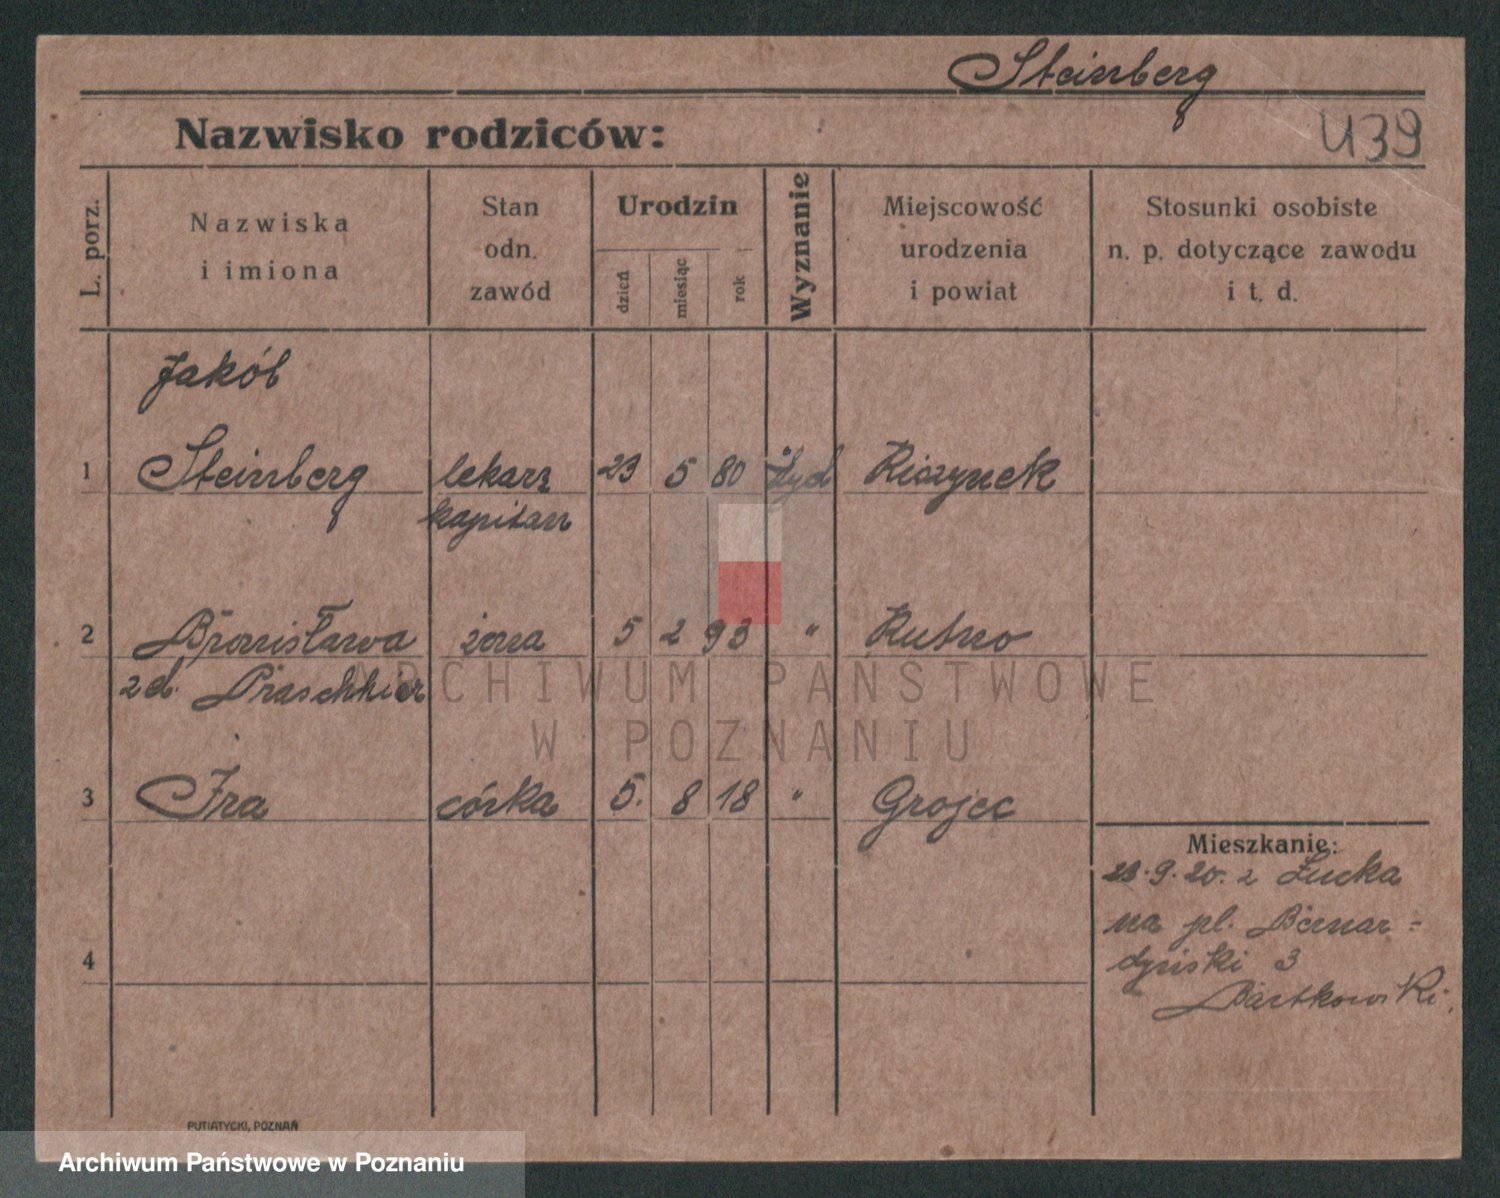 Steinberg
439
Nazwisko rodziców:
L. porz.
Nazwiska
i imiona
Stan
odn.
zawód
Urodzin
dzień
miesiąc
rok
Wyznanie
Miejscowość
urodzenia
i powiat
Stosunki osobiste
n. p. dotyczące zawodu
i t. d.
Jakób
1 Steinberg lekarz 23 5 80 żyd
kapitan
2 Bronisława żona 5 2 93 " Kutno
zd. Praschkier
3 Ira córka 5. 8 18 " Grojec
Mieszkanie:
23.9.20. z Łucka
na pl. Bernar=
dyński 3
Bartkowski.
4
PUTIATYCKI, POZNAŃ
ARCHIWUM PAŃSTWOWE
W POZNANIU
Archiwum Państwowe w Poznaniu